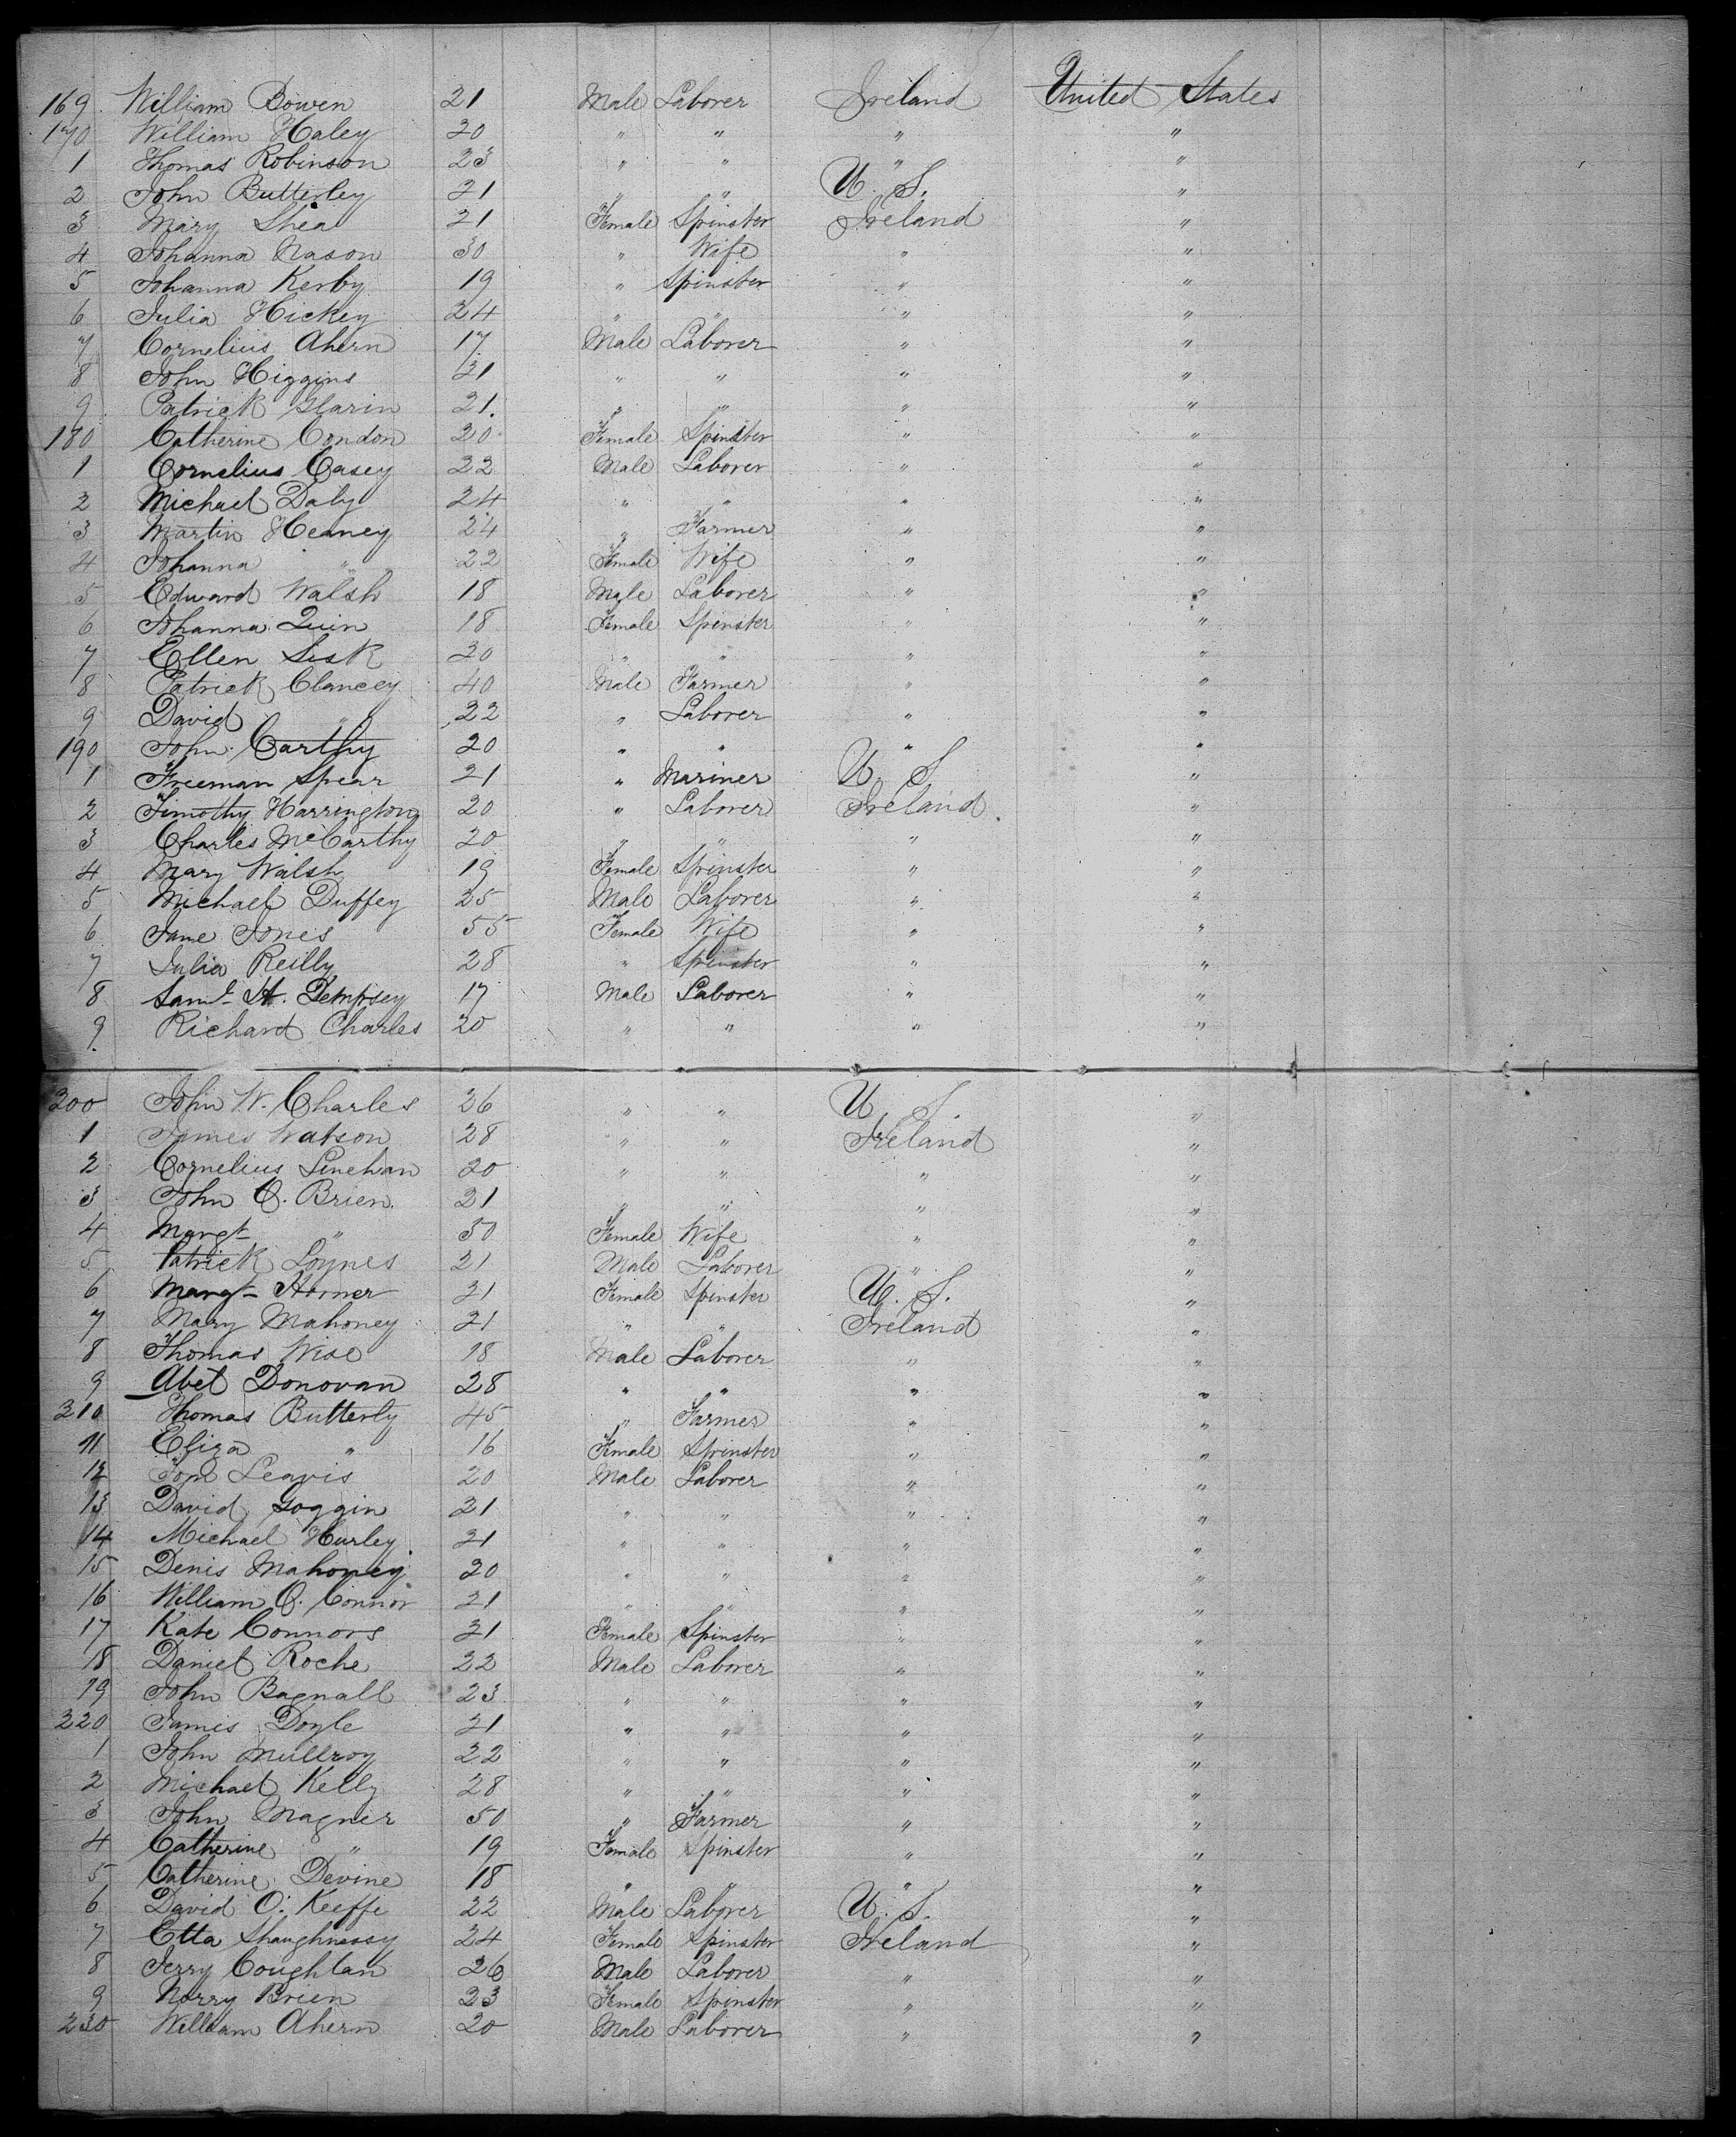 169 William Bowen 21 Male Laborer Ireland United States
170 William Haley 20 " " " "
1 Thomas Robinson 23 " " " "
2 John Butterley 21 " " U. S. "
3 Mary Shea 21 Female Spinster Ireland "
4 Johanna Nason 30 " Wife " "
5 Johanna Kerby 19 " Spinster " "
6 Julia Hickey 24 " " " "
7 Cornelius Ahern 17 Male Laborer " "
8 John Higgins 21 " " " "
9 Patrick 21. " " " "
180 Catherine Condon 20 Female Spinster " "
1 Cornelius Casey 22 Male Laborer " "
2 Michael Daly 24 " " " "
3 Martin Heaney 24 " Farmer " "
4 Johanna " 22 Female Wife " "
5 Edward Walsh 18 Male Laborer " "
6 Johanna Quin 18 Female Spinster " "
7 Ellen Sisk 20 " " " "
8 Patrick Clancey 40 Male Farmer " "
9 David " 22 " Laborer " "
190 John Carthy 20 " " " "
1 Freeman Spear 21 " Mariner U. S. "
2 Timothy Harrington 20 " Laborer Ireland "
3 Charles McCarthy 20 " " " "
4 Mary Walsh 19 Female Spinster " "
5 Michael Duffey 25 Male Laborer " "
6 Jane Jones 55 Female Wife " "
7 Julia Reilly 28 " Spinster " "
8 Saml. H. Dempsey 17 Male Laborer " "
9 Richard Charles 20 " " " "
200 John W. Charles 26 " " U. S. "
1 James Watson 28 " " Ireland "
2 Cornelius Linehan 20 " " " "
3 John O. Brien 21 " " " "
4 Margt " 30 Female Wife " "
5 Patrick Loynes 21 Male Laborer " "
6 Margt Horner 21 Female Spinster U. S. "
7 Mary Mahoney 21 " " Ireland "
8 Thomas Wise 18 Male Laborer " "
9 Abel Donovan 28 " " " "
210 Thomas Butterly 45 " Farmer " "
11 Eliza " 16 Female Spinster " "
12 Tom Leavis 20 Male Laborer " "
13 David Goggin 21 " " " "
14 Michael Hurley 21 " " " "
15 Denis Mahoney 20 " " " "
16 William O. Connor 21 " " " "
17 Kate Connors 21 Female Spinster " "
18 Daniel Roche 22 Male Laborer " "
19 John Bagnall 23 " " " "
220 James Doyle 21 " " " "
1 John Mullroy 22 " " " "
2 Michael Kelly 28 " " " "
3 John Magner 50 " Farmer " "
4 Catherine " 19 Female Spinster " "
5 Catherine Devine 18 " " " "
6 David O. Keeffe 22 Male Laborer U. S. "
7 Etta Shaughnessy 24 Female Spinster Ireland "
8 Jerry Coughlan 26 Male Laborer " "
9 Norry Brien 23 Female Spinster " "
230 William Ahern 20 Male Laborer " "